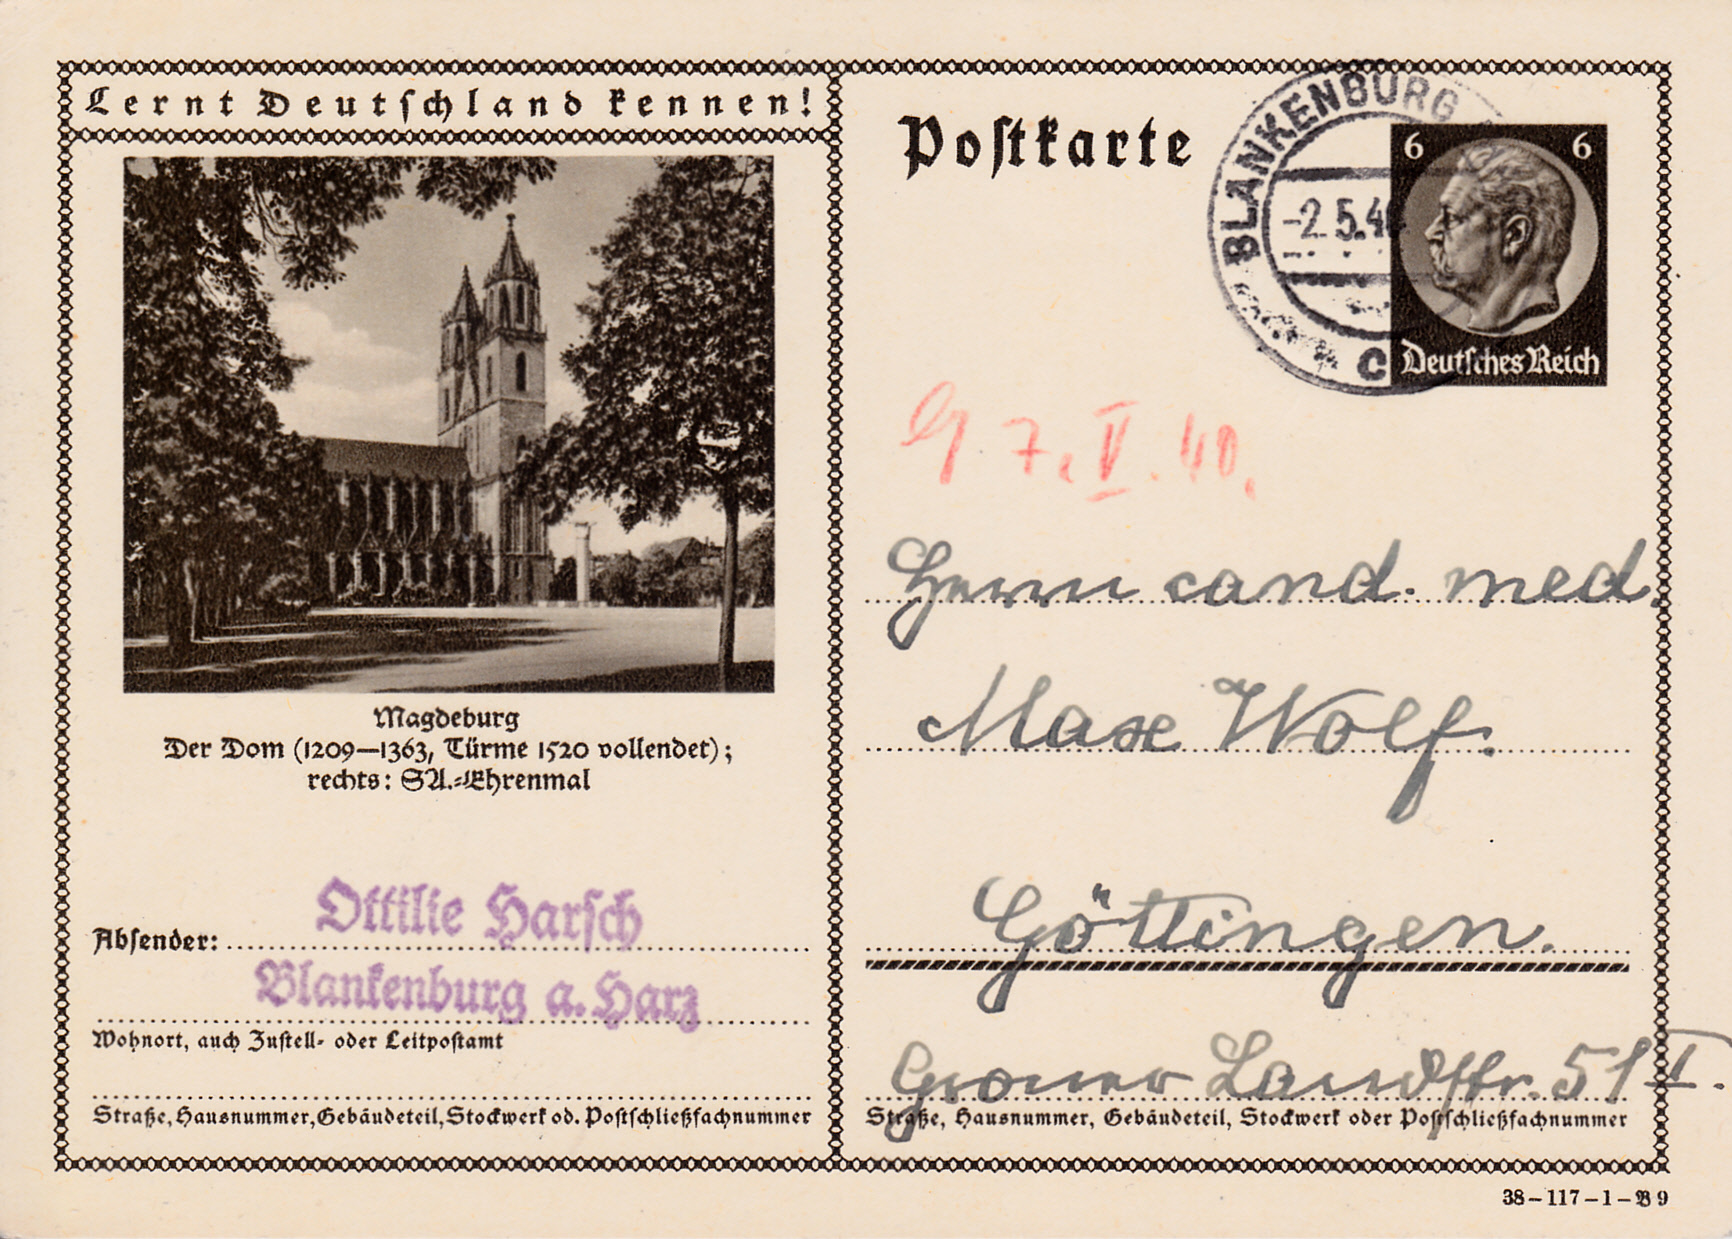 Lernt Deutschland kennen!
Magdeburg
Der Dom (1209—1363, Türme 1520 vollendet);
rechts: SA.-Ehrenmal
Absender:
Ottilie Harsch
Blankenburg a. Harz
Wohnort, auch Zustell- oder Leitpostamt
Straße, Hausnummer, Gebäudeteil, Stockwerk od. Postschließfachnummer
Postkarte
BLANKENBURG
-2.5.40
c
6 6
Deutsches Reich
7. V. 40.
Herrn cand. med.
Max Wolf.
Göttingen.
Groner Landstr. 51 I.
Straße, Hausnummer, Gebäudeteil, Stockwerk oder Postschließfachnummer
38–117–1–B 9